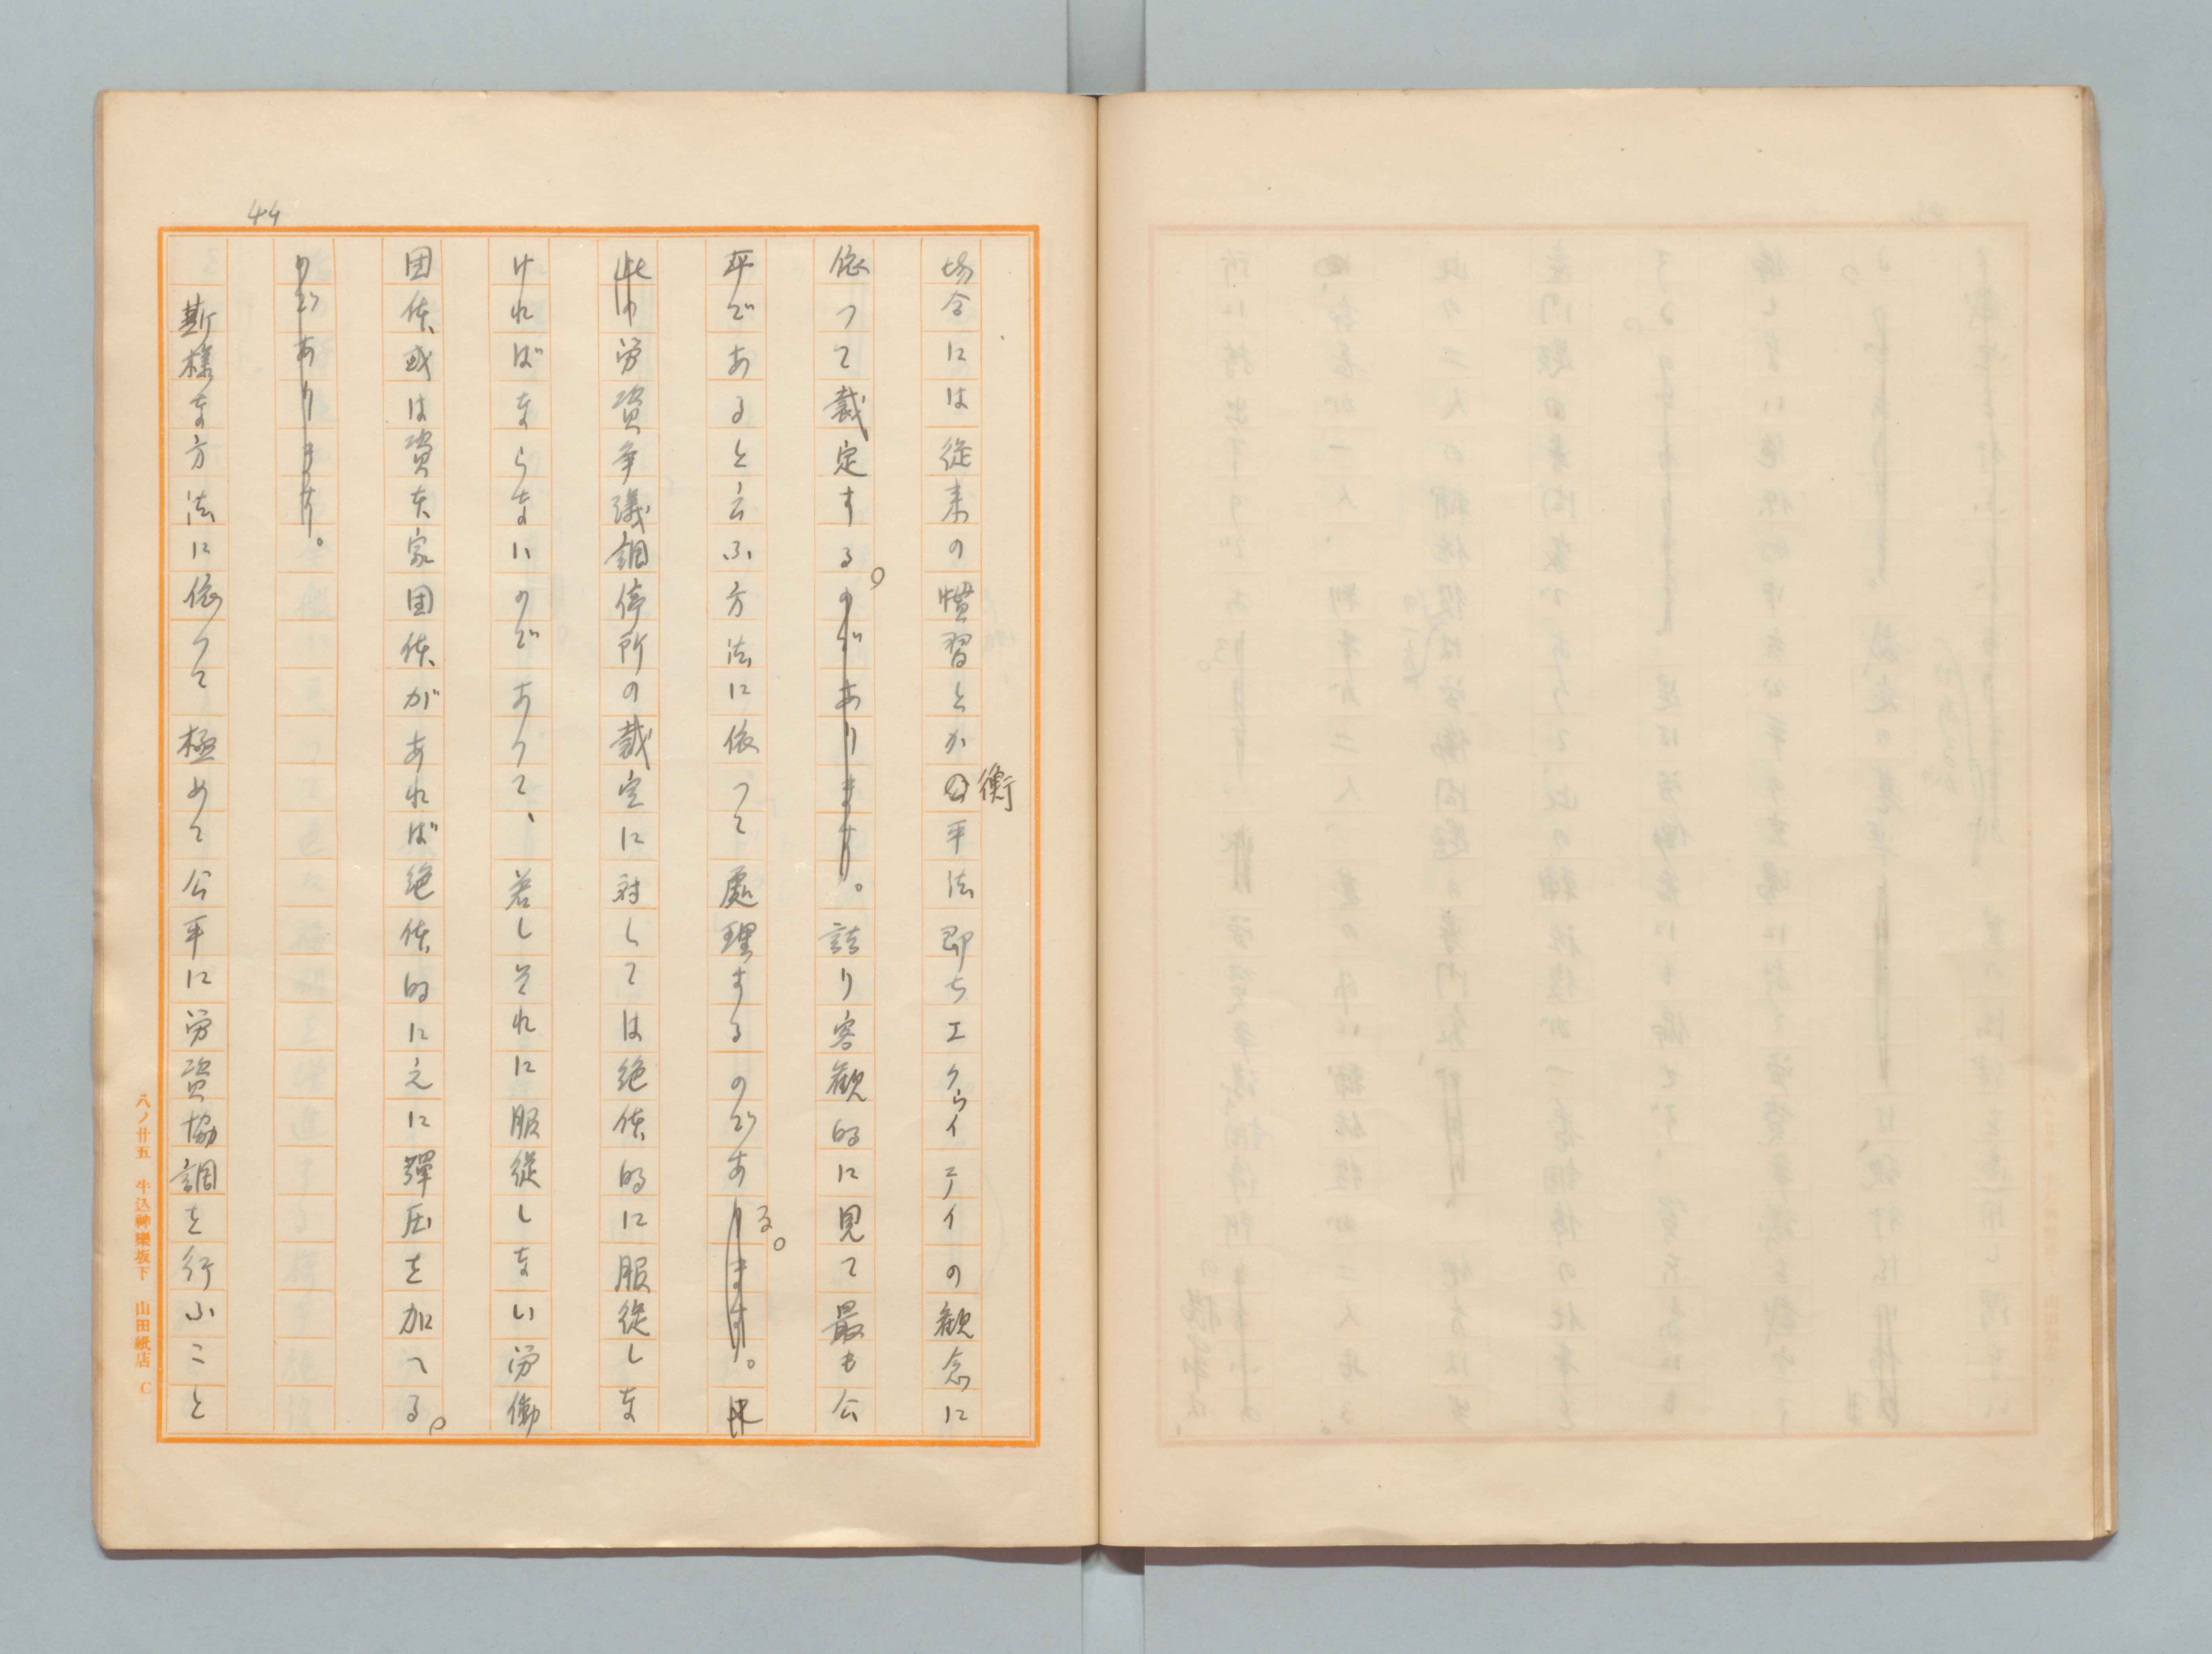 44
場合には従来の慣習とか衡平法即ちエクイテイの観念に
依つて裁定する。のであります。詰り客観的に見て最も公
平であると云ふ方法に依つて處理するのであります。る。
此の労資争議調停所の裁定に対しては絶体的に服従しな
ければならないのであつて、若しそれに服従しない労働
団体、或は資本家団体があれば絶体的に之に弾圧を加へる。
のであります。
斯様な方法に依つて極めて公平に労資協調を行ふこと
八ノ廿五 牛込神樂坂下 山田紙店 C